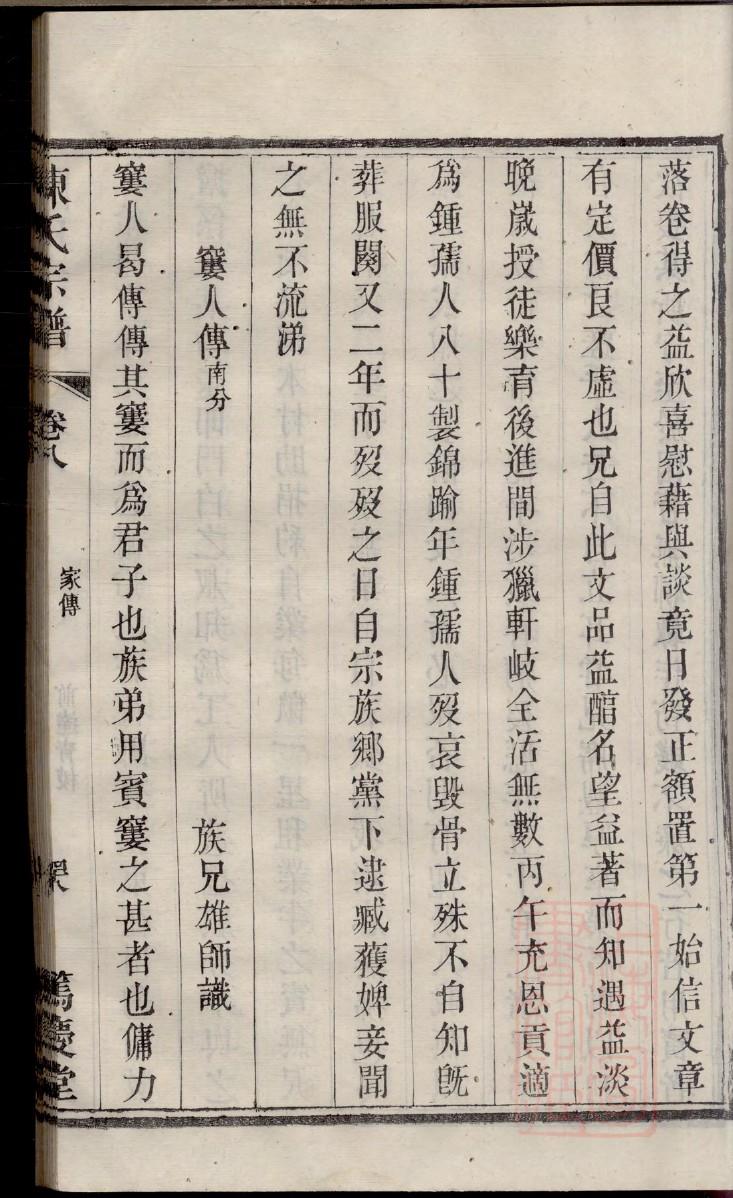 落卷得之益欣喜慰藉與談竟日發正額置第一始信文章
有定價良不虛也兄自此文品益醇名望益著而知遇益淡
晚嵗授徒樂育後進間涉獵軒岐全活無數丙午充恩貢適
爲鍾孺人八十製錦踰年鍾孺人歿哀毀骨立殊不自知旣
葬服闋又二年而歿歿之日自宗族鄉黨下逮臧獲婢妾聞
之無不流涕
窶人傳南分
族兄雄師識
窶人曷傳傳其窶而爲君子也族弟用賓窶之甚者也傭力
陳氏宗譜
卷八
家傳
篤慶堂